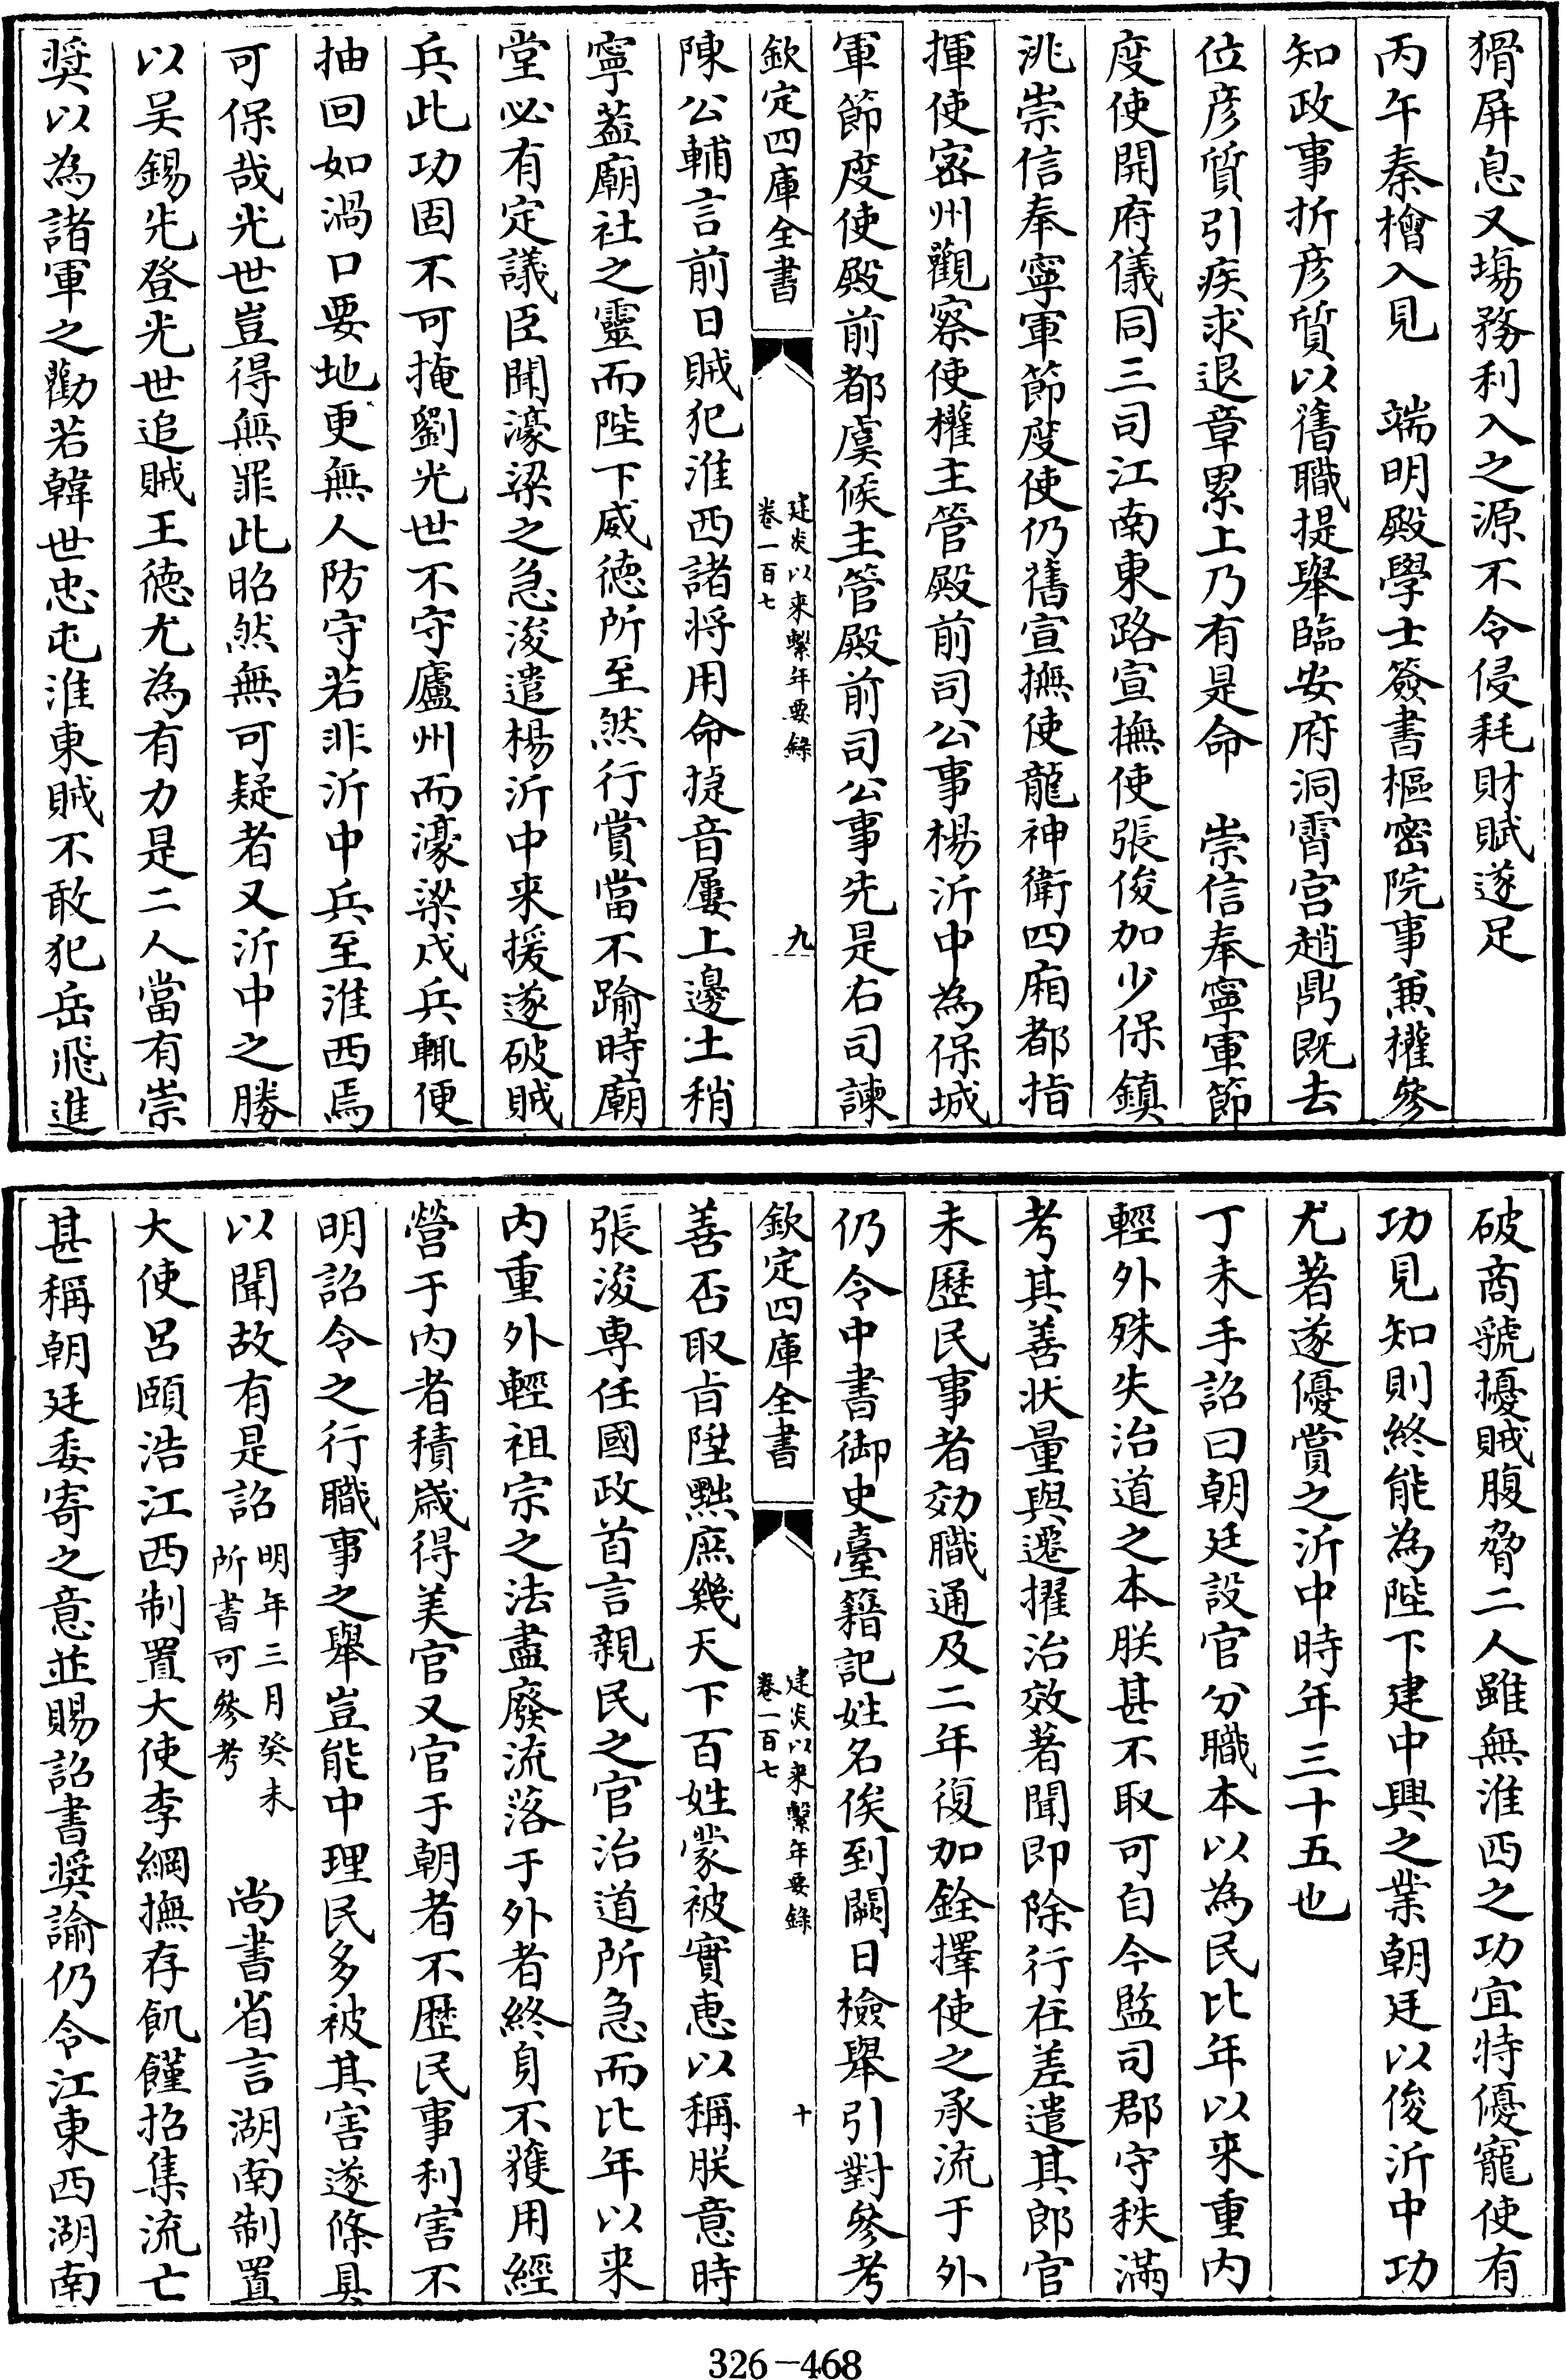 猾屏息又塲務利入之源不令侵耗財賦遂足
丙午秦檜入見　端明殿學士簽書樞密院事兼權參
知政事折彦質以舊職提舉臨安府洞霄宫趙鼎既去
位彦質引疾求退章累上乃有是命　崇信奉寧軍節
度使開府儀同三司江南東路宣撫使張俊加少保鎮
洮崇信奉寧軍節度使仍舊宣撫使龍神衛四廂都指
揮使宻州觀察使權主管殿前司公事楊沂中為保城
軍節度使殿前都虞候主管殿前司公事先是右司諫
欽定四庫全書
建炎以来繫年要錄
卷一百七
九
陳公輔言前日賊犯淮西諸将用命捷音屢上邊土稍
寧葢廟社之靈而陛下威德所至然行賞當不踰時廟
堂必有定議臣聞濠梁之急浚遣楊沂中来援遂破賊
兵此功固不可掩劉光世不守廬州而濠梁戍兵輒便
抽回如渦口要地更無人防守若非沂中兵至淮西焉
可保哉光世豈得無罪此昭然無可疑者又沂中之勝
以吴錫先登光世追賊王徳尤為有力是二人當有崇
奨以為諸軍之勸若韓世忠屯淮東賊不敢犯岳飛進
破商虢擾賊腹脅二人雖無淮西之功宜特優寵使有
功見知則終能為陛下建中興之業朝廷以俊沂中功
尤著遂優賞之沂中時年三十五也
丁未手詔曰朝廷設官分職本以為民比年以来重内
輕外殊失治道之本朕甚不取可自今監司郡守秩滿
考其善状量與遷擢治效著聞即除行在差遣其郎官
未歷民事者効職通及二年復加銓擇使之承流于外
仍令中書御史臺籍記姓名俟到闕日檢舉引對參考
欽定四庫全書
建炎以来繫年要錄
卷一百七
十
善否取㫖陞黜庶幾天下百姓蒙被實惠以稱朕意時
張浚専任國政首言親民之官治道所急而比年以来
内重外輕祖宗之法盡廢流落于外者終身不獲用經
營于内者積歳得美官又官于朝者不歴民事利害不
明詔令之行職事之舉豈能中理民多被其害遂條具
以聞故有是詔明年三月癸未所書可參考　尚書省言湖南制置
大使吕頤浩江西制置大使李綱撫存飢饉招集流亡
甚稱朝廷委寄之意並賜詔書奨諭仍令江東西湖南
326-468